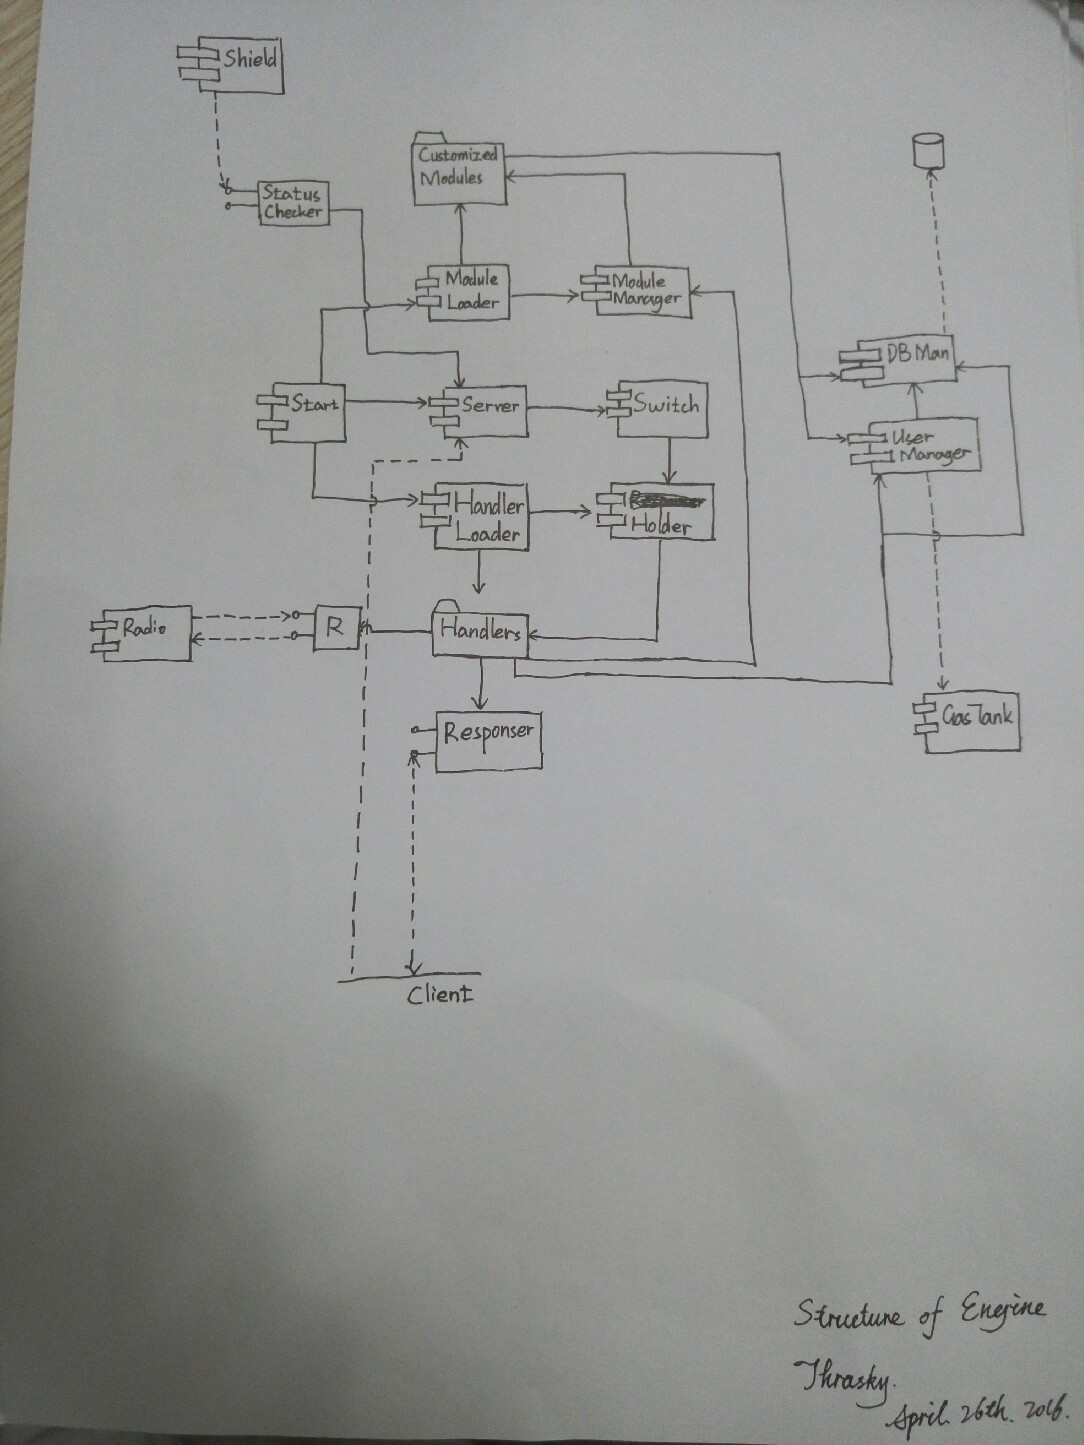 Shield
Customized
Modules
Status
Checker
Module
Loader
Module
Manager
DB Man
Start
Server
Switch
User
Manager
Handler
Loader
Holder
Radio
R
Handlers
Gas Tank
Responser
Client
Structure of Enegine
Thrasky.
April. 26th. 2016.